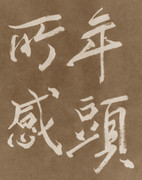 年頭
所感